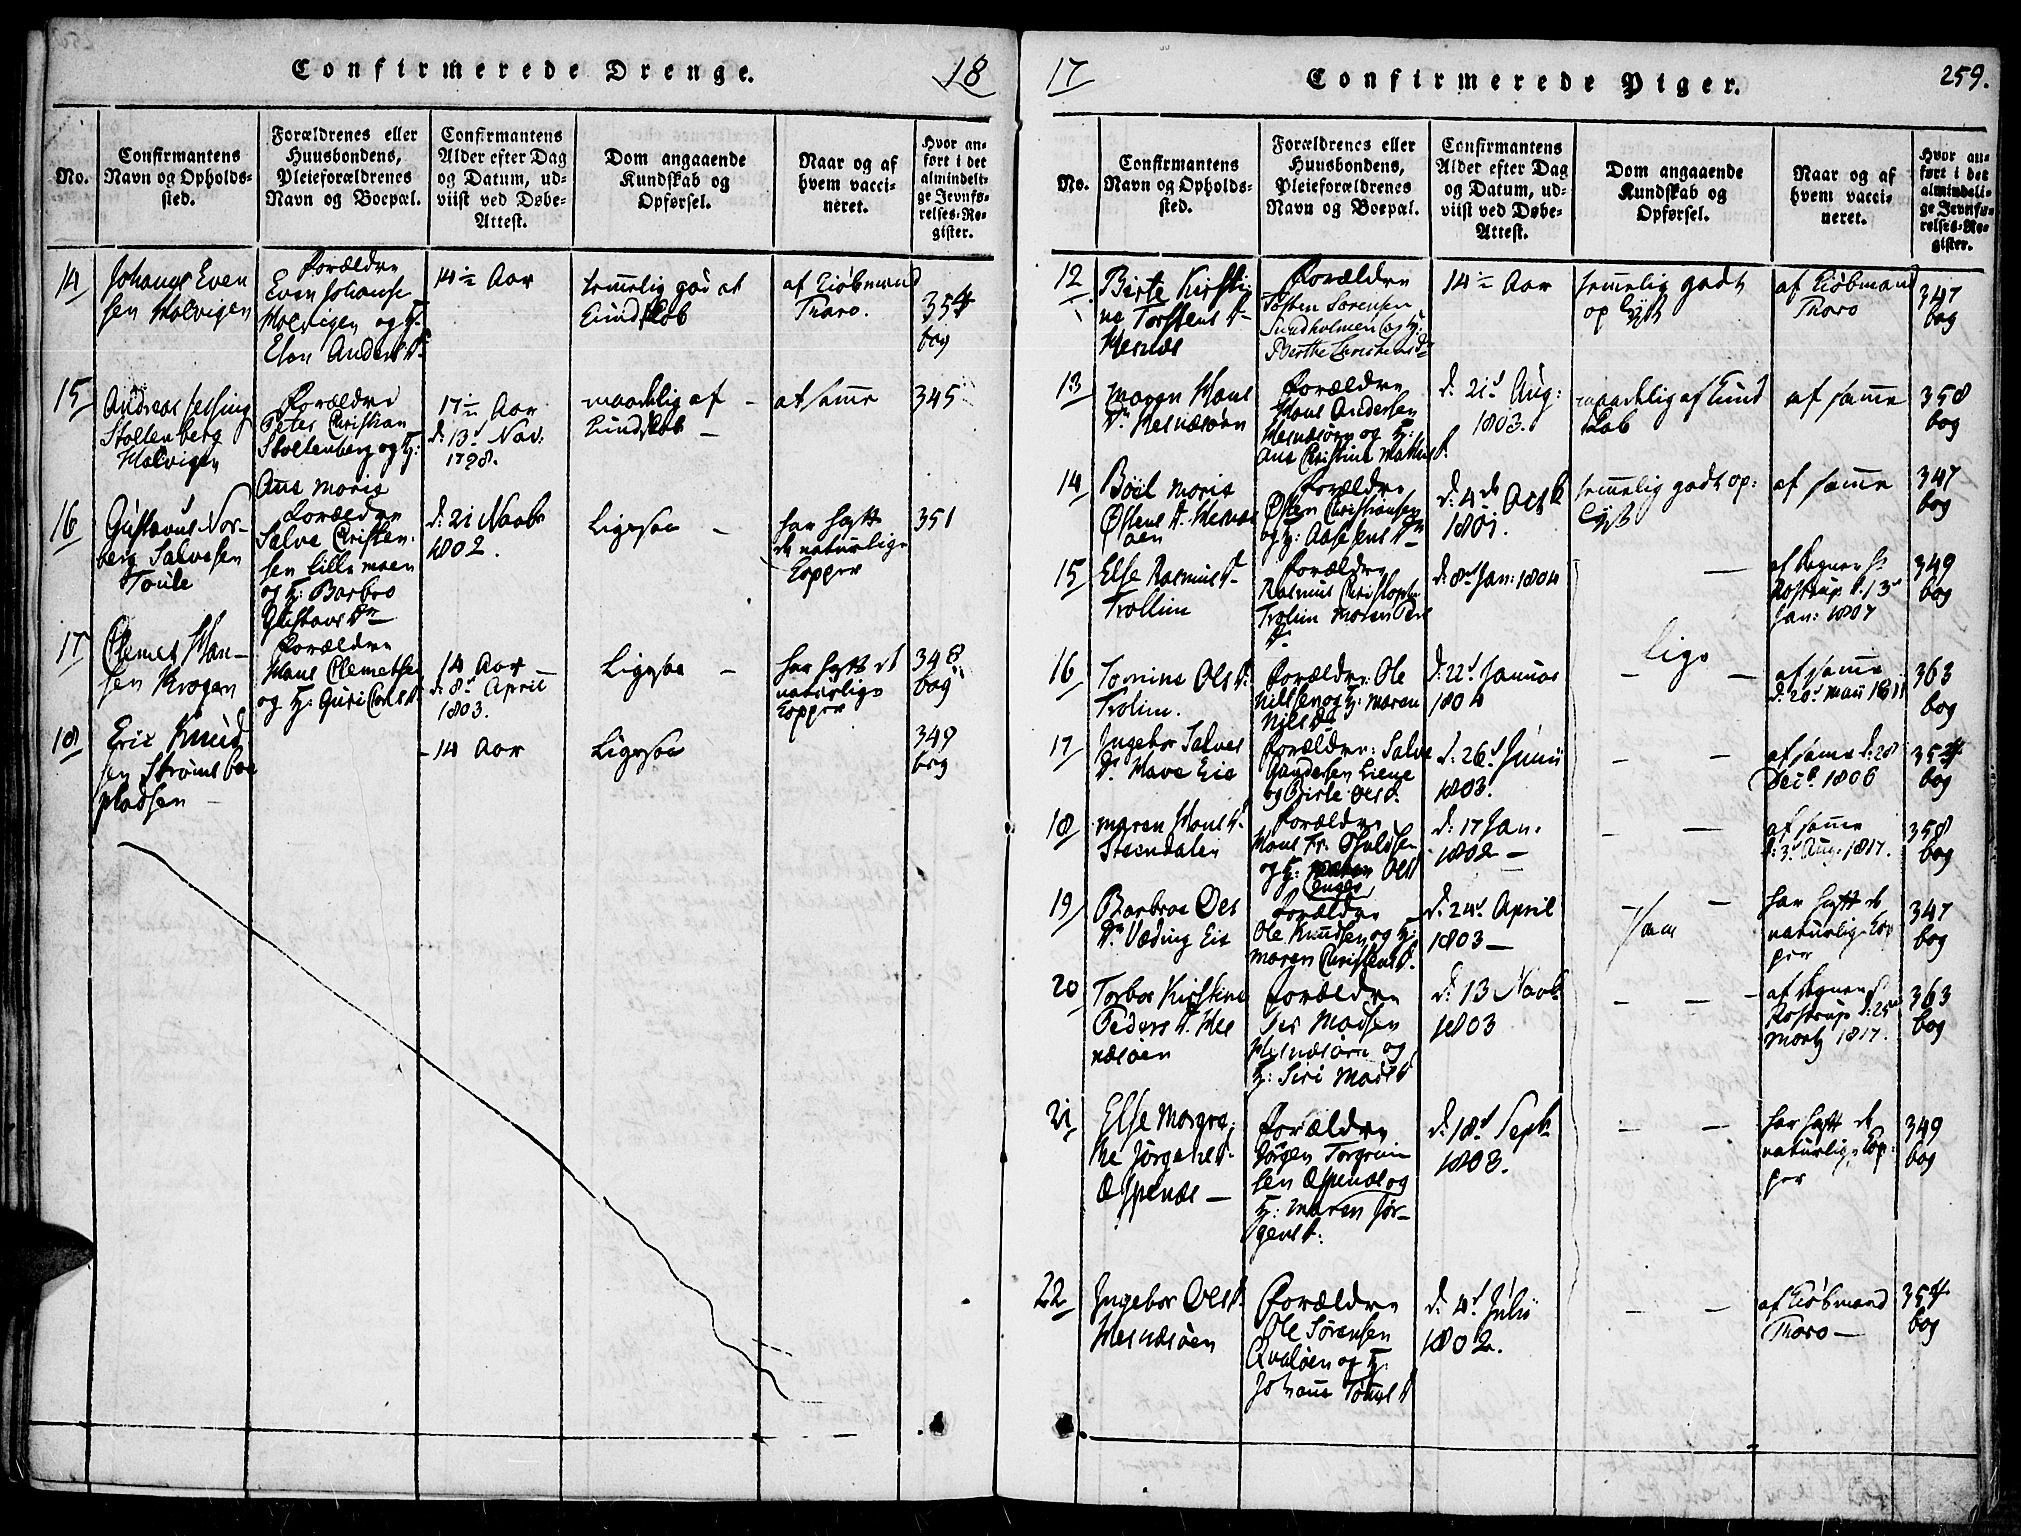 Confirmerede Drenge.
18
No.
Confirmantens
Navn og Opholds-
sted.
Forældrenes eller
Huusbondens,
Pleieforældrenes
Navn og Boepæl.
Confirmantens
Alder efter Dag
og Datum, ud-
viist ved Døbe-
Attest.
Dom angaaende
Kundskab og
Opførsel.
Naar og af
hvem vacci-
neret.
Hvor an-
ført i det
almindeli-
ge Jevnfø-
relses-Re-
gister.
14
Johannes Even
sen Holvigen
Forældre
Even Johanse
Holvigen og H:
Elen Anders D.
14 ½ Aar
temmelig god at
Kundskab
af Kiøbmand
Thoro.
354
bog
15
Andreas Jessing
Stoltenberg
Holvigen
Forældre
Peter Christian
Stoltenberg og H:
Ane Maria
17 ½ Aar
d: 13d Nov:
1798.
maadelig af -
Kundskab -
at samme
345
16
Gustavus Nor-
berg Salvesen
Toule
Forældre
Salve Christen-
sen Lille moen
og H: Barbro
Gustavs Dr
d: 21 Novbr
1802.
Ligesaa -
har haft
de naturlige
Kopper
351
17
Clemet Han-
sen Krogen
Forældre
Hans Clemetsen
og H: Guri Carls D.
14 Aar -
d: 8d April
1803.
Ligesaa -
har haft de
naturlige
Kopper
348
bog
18
Eric Knud
sen Strømsboe
pladsen -
- 14 Aar
Ligesaa
349
bog
17
Confirmerede Piger.
259.
No.
Confirmantens
Navn og Opholds-
sted.
Forældrenes eller
Huusbondens,
Pleieforældrenes
Navn og Boepæl.
Confirmantens
Alder efter Dag
og Datum, ud-
viist ved Døbe-
Attest.
Dom angaaende
Kundskab og
Opførsel.
Naar og af
hvem vacci-
neret.
Hvor an-
ført i det
almindeli-
ge Jevnfø-
relses-Re-
gister.
12
Birte Kirsti-
ne Torstens D.
Hesnæs
Forældre
Tosten Sørensen
Sundholmen og H:
Berthe
14 ½ Aar
temmelig godt
oplyst
af Kiøbmand
Thoro
347
bog
13
Maren Hans
Dr Hesnæsøen
Forældre
Hans Andersen
Hesnæsøen og H:
Ane Christine
d: 21d Aug:
1803.
maadelig af Kund
skab
af samme
358
bog
14
Boel Maria
Østens D. Hesnæs
øen
Forældre
Østen Christiansen
og H: Aase Jens Dr
d: 4de Octbr
1801.
temmelig godt op-
lyst
af samme
347
bog
15
Else Rasmus D.
Trollim
Forældre
Rasmus Christophe
Trolim Maren Per
D.
d: 8d Jan: 1804
-
af Degnen Hr
Rostrup d. 13d
Jan: 1807
349
bog
16
Tomine Ols D.
Trolim.
Forældre: Ole
Nilsen og H: Maren
Niels Dr
d: 22d Januar
1804
lige
- -
af samme
d: 20d Maii 1811
363
bog
17
Ingebor Salves
Dr Have Eie
Forældre: Salve
Gundersen Liene
og Birte Ols D.
d. 26d Junii
1803.
- -
af samme d: 28
Decb. 1806
354
bog
18
Maren Hans D.
Steendalen
Forældre
Hans Fr. Osuldsen
og H: Maren Ols D
d: 17 Jan.
1802 -
- -
af samme
d: 3d Aug. 1817.
358
bog
19
Barbroe Ols
Dr Væding Eie
Forældre
Ole Knudsen og H:
Maren Christens D.
d: 24d April
1803 -
saa
har haft de
naturlige Kop
per
347
bog
20
Torbor Kirstine
Peders D. Hes
næsøen
Forældre
Per Madsen
Hesnæsøen og
H: Siri Mads D
d: 13 Novb.
1803
- - -
af Degnen
Rostrup d: 25de
Martz 1817.
363
bog
21
Else Margre-
the Jørgens D.
Æspenæs -
Forældre
Jørgen Torgrim
sen Æspenæs og
H: Maren Jør-
gens D:
d: 18d Septb
1803.
- -
har haft de
naturlige Kop-
per
349
bog
22
Ingebor Ols D.
Hesnæsøen
Forældre
Ole Sørensen
Qvaløen og H:
Johanne Tønnes D
d: 4d Julii
1802.
- -
af Kiøbmand
Thoro -
354
bog